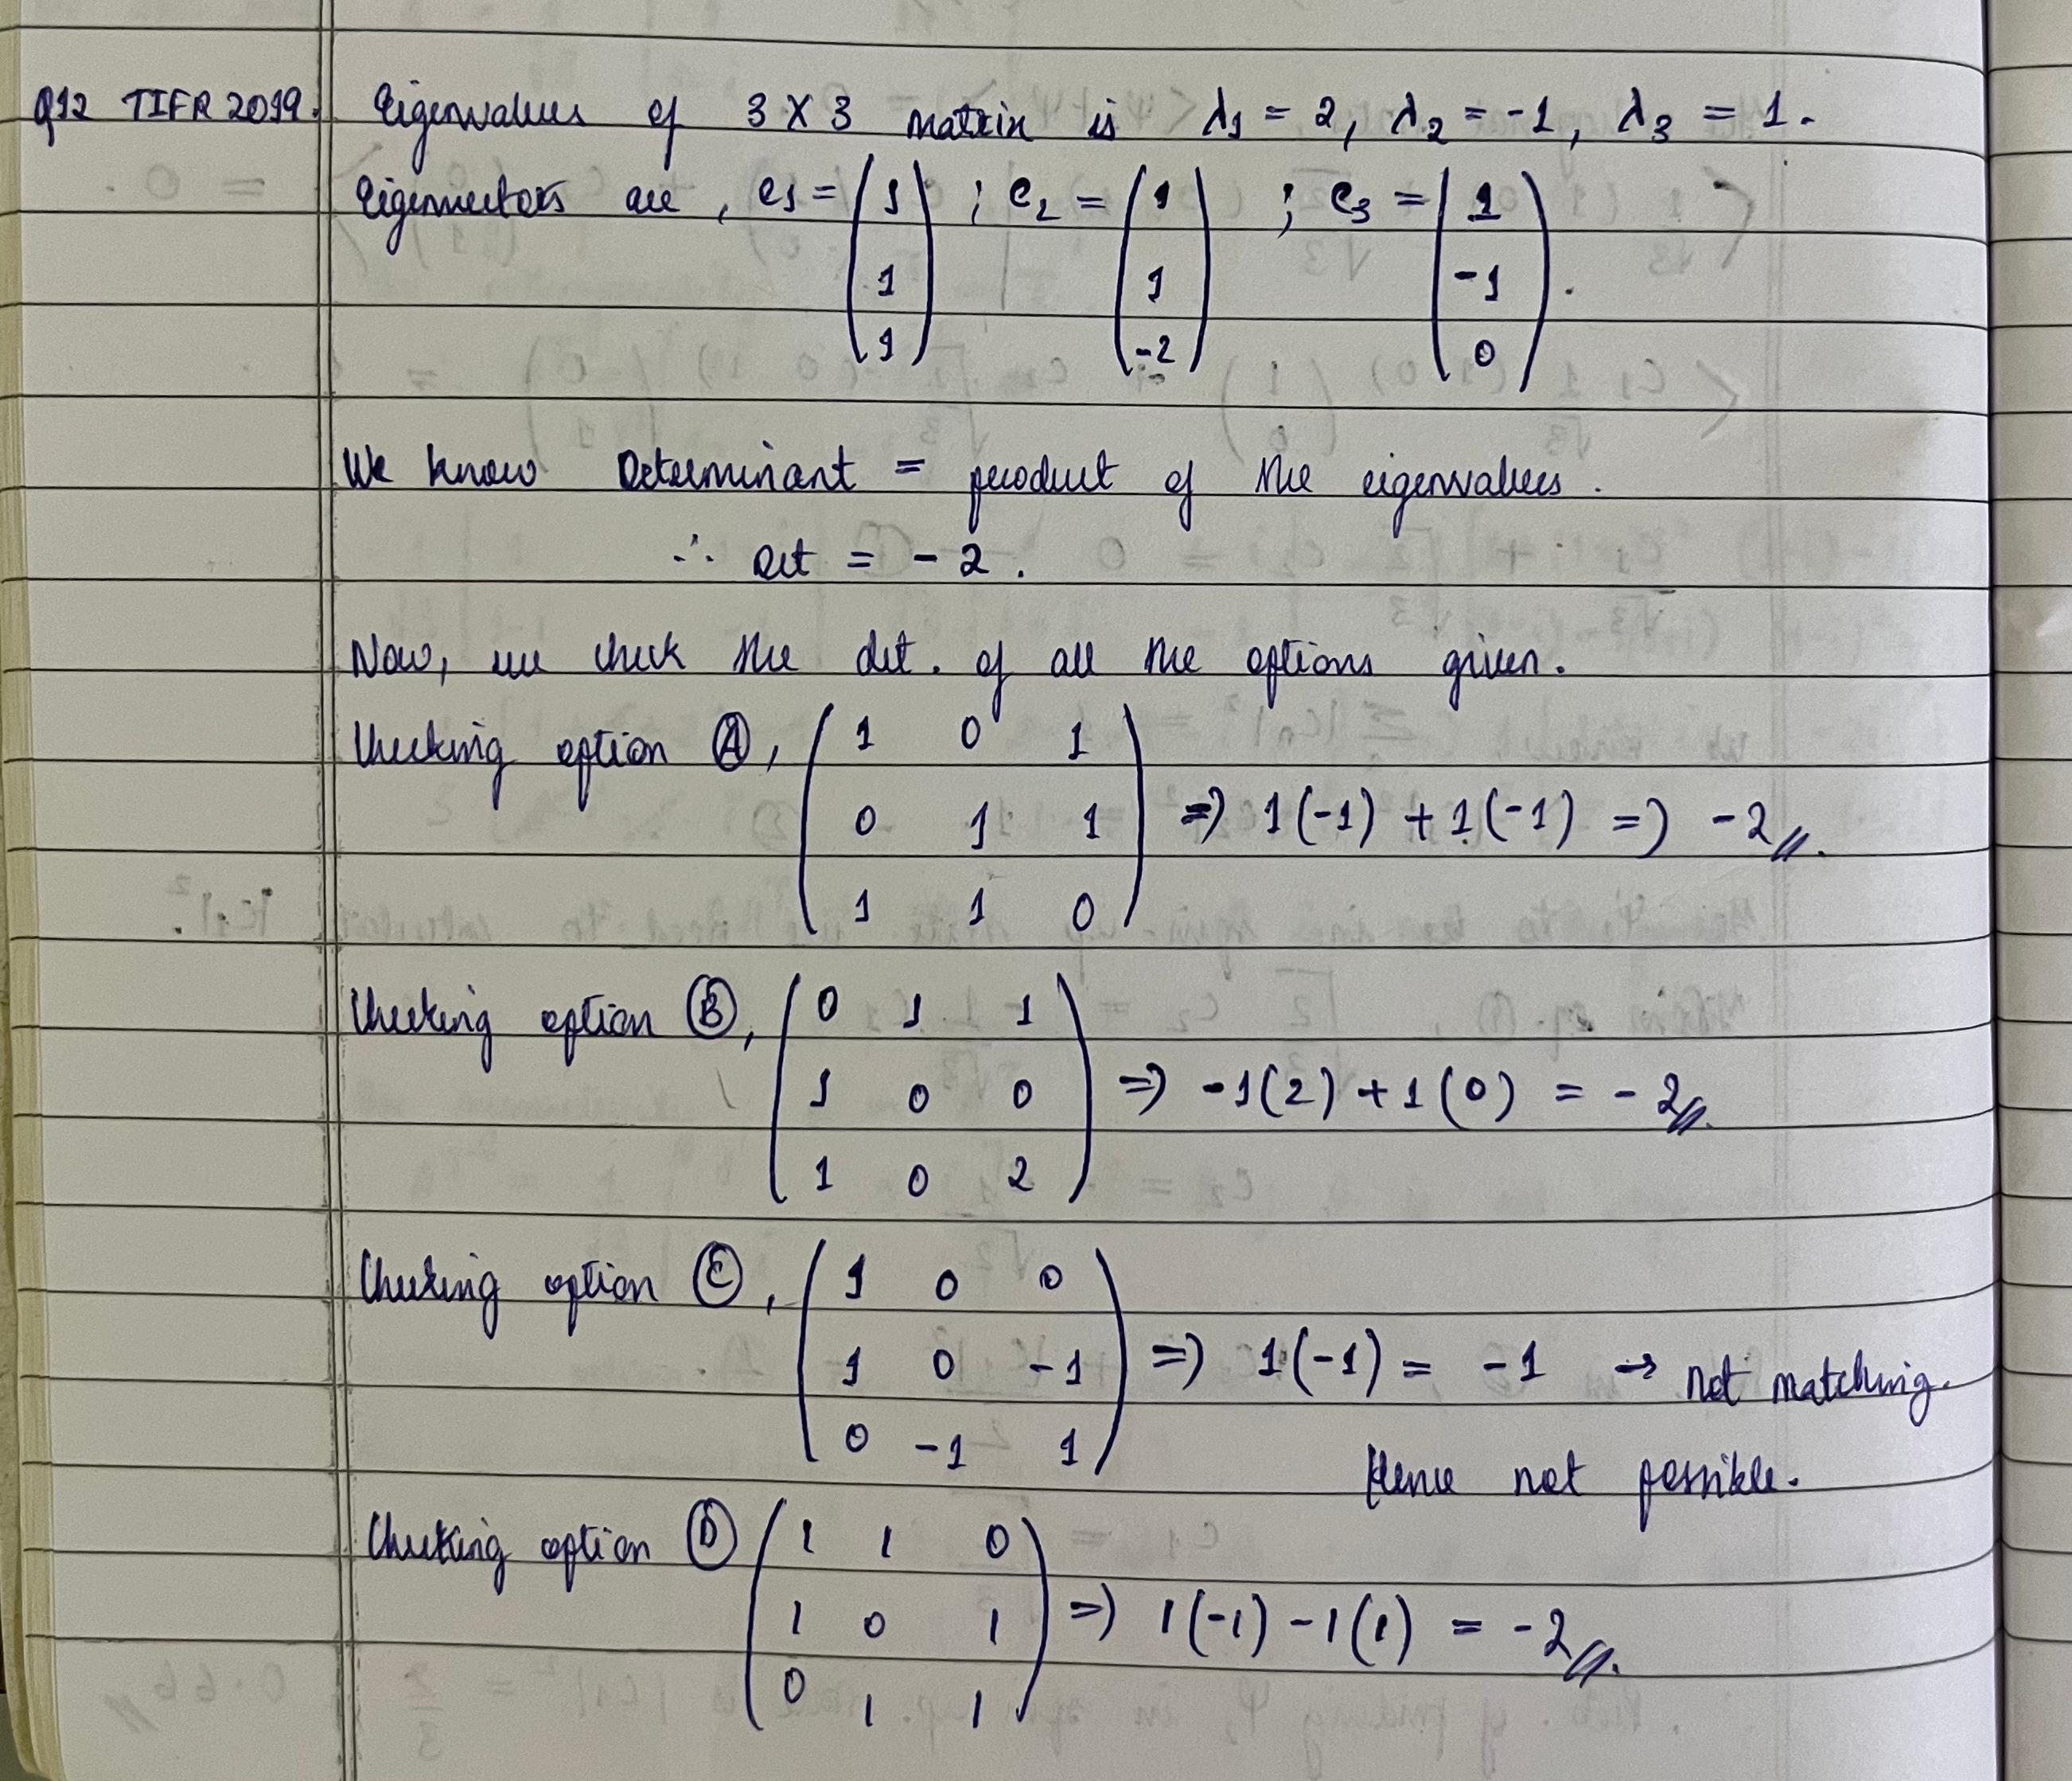 Q12 TIFR 2019. Eigenvalues of 3 X 3 matrix is λ1 = 2, λ2 = -1, λ3 = 1.
Eigenvectors are, e1 = (1 1 1) ; e2 = (1 1 -2) ; e3 = (1 -1 0).
We know Determinant = product of the eigenvalues.
∴ Det = -2.
Now, we check the det. of all the options given.
Checking option Ⓐ,
1 0 1
0 1 1 => 1(-1) + 1(-1) => -2//.
1 1 0
Checking option Ⓑ,
0 1 1
1 0 0 => -1(2) + 1(0) = -2//.
1 0 2
Checking option Ⓒ,
1 0 0
1 0 -1 => 1(-1) = -1 → not matching.
0 -1 1
Hence not possible.
Checking option Ⓓ
1 1 0
1 0 1 => 1(-1) -1(1) = -2//.
0 1 1